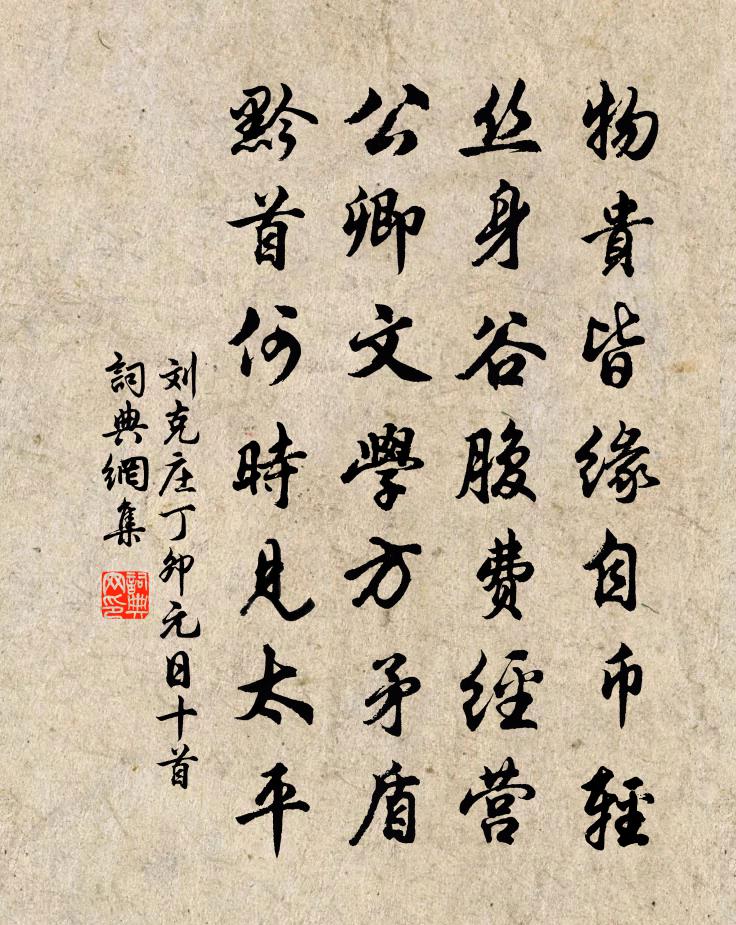 物貴皆緣自币輕
丝身谷腹費經营
公卿文學方矛盾
黔首何時見太平
刘克庄丁卯元日十首
詞典網集
詞典网印